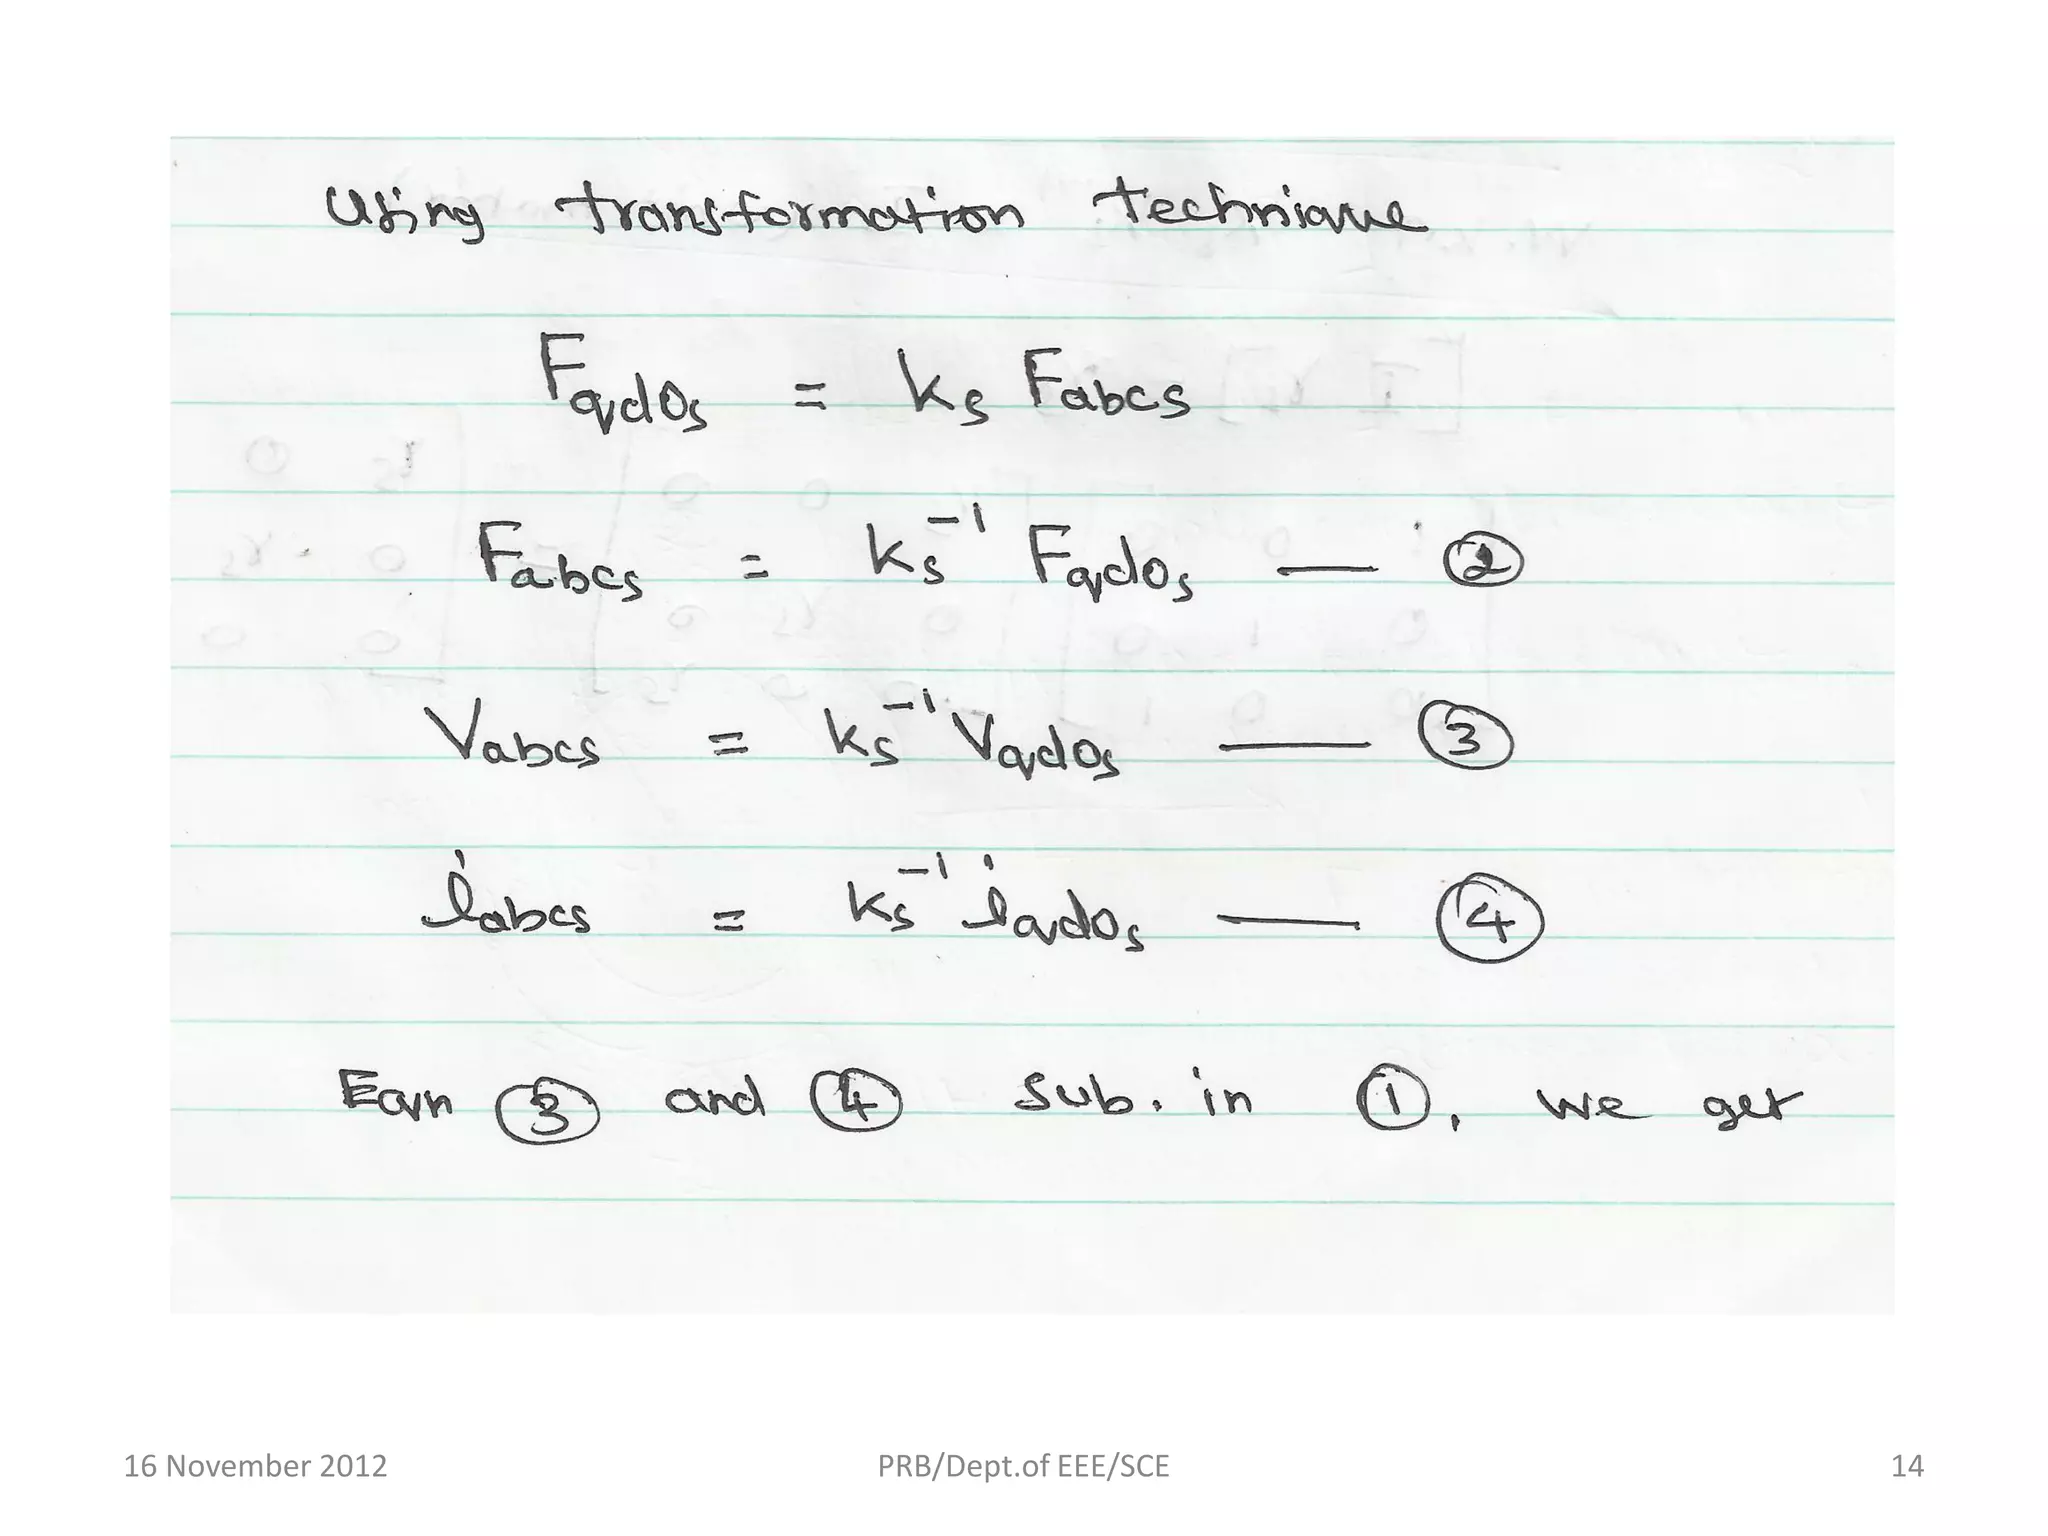 Using transformation technique
Fqdos = Ks Fabcs
Fabcs = Ks⁻¹ Fqdos — ②
Vabcs = Ks⁻¹ Vqdos — ③
iabcs = Ks⁻¹ iqdos — ④
Eqn ③ and ④ sub. in ①, we get
16 November 2012 PRB/Dept.of EEE/SCE 14